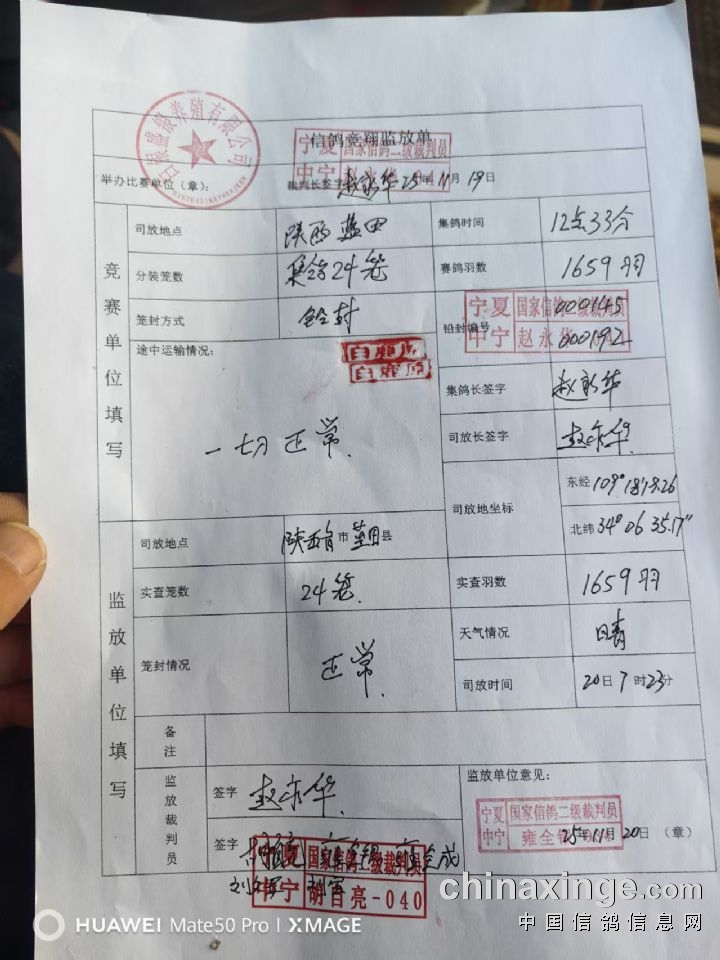 信鸽竞翔监放单
宁夏 国家信鸽二级裁判员
中宁
举办比赛单位（章）： 裁判长签字 赵永华 25年11月19日
竞赛单位填写
司放地点 陕西 蓝田 集鸽时间 12点33分
分装笼数 集鸽24笼 赛鸽羽数 1659羽
笼封方式 铅封 铅封编号 000145
000192
宁夏 国家信鸽二级裁判员
中宁 赵永华
途中运输情况： 白鹿原
白鹿原
一切正常.
集鸽长签字 赵永华
司放长签字 赵永华
司放地坐标 东经 109°1818.26
北纬 34°06 35.17"
监放单位填写
司放地点 陕西省市蓝田县
实查笼数 24笼. 实查羽数 1659羽
笼封情况 正常. 天气情况 晴
司放时间 20日7时23分
备注
监放裁判员
签字 赵永华.
签字
监放单位意见：
宁夏 国家信鸽二级裁判员
中宁 雍全
25年11月20日（章）
宁夏 国家信鸽二级裁判员
中宁 胡自亮-040
HUAWEI Mate50 Pro | XMAGE
chinaxinge.com
中国信鸽信息网